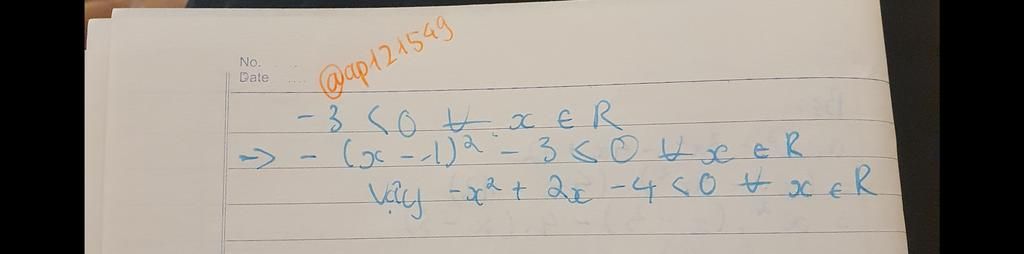 No. ....
Date ....
@ap121549
-3 < 0 ∀ x ∈ R
=> - (x - 1)² - 3 < 0 ∀ x ∈ R
Vậy -x² + 2x - 4 < 0 ∀ x ∈ R